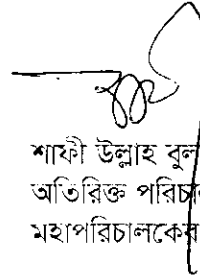 শাফী উল্লাহ বুল
অতিরিক্ত পরিচাল
মহাপরিচালকের